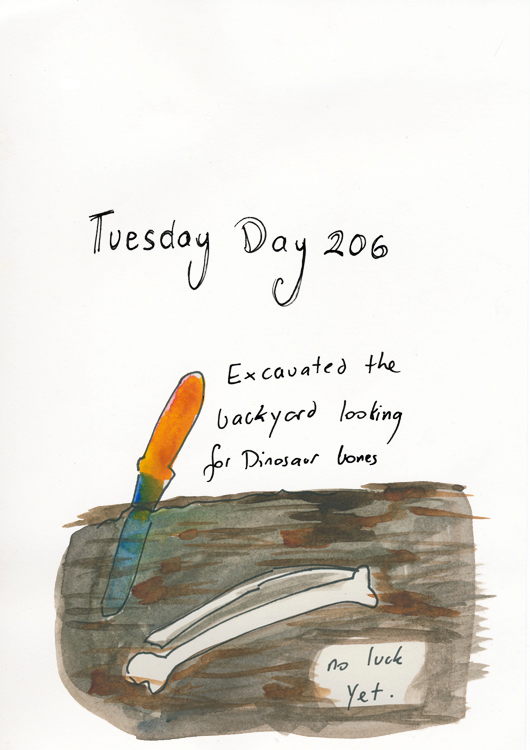 Tuesday Day 206
Excavated the
backyard looking
for Dinosaur bones
no luck
yet.